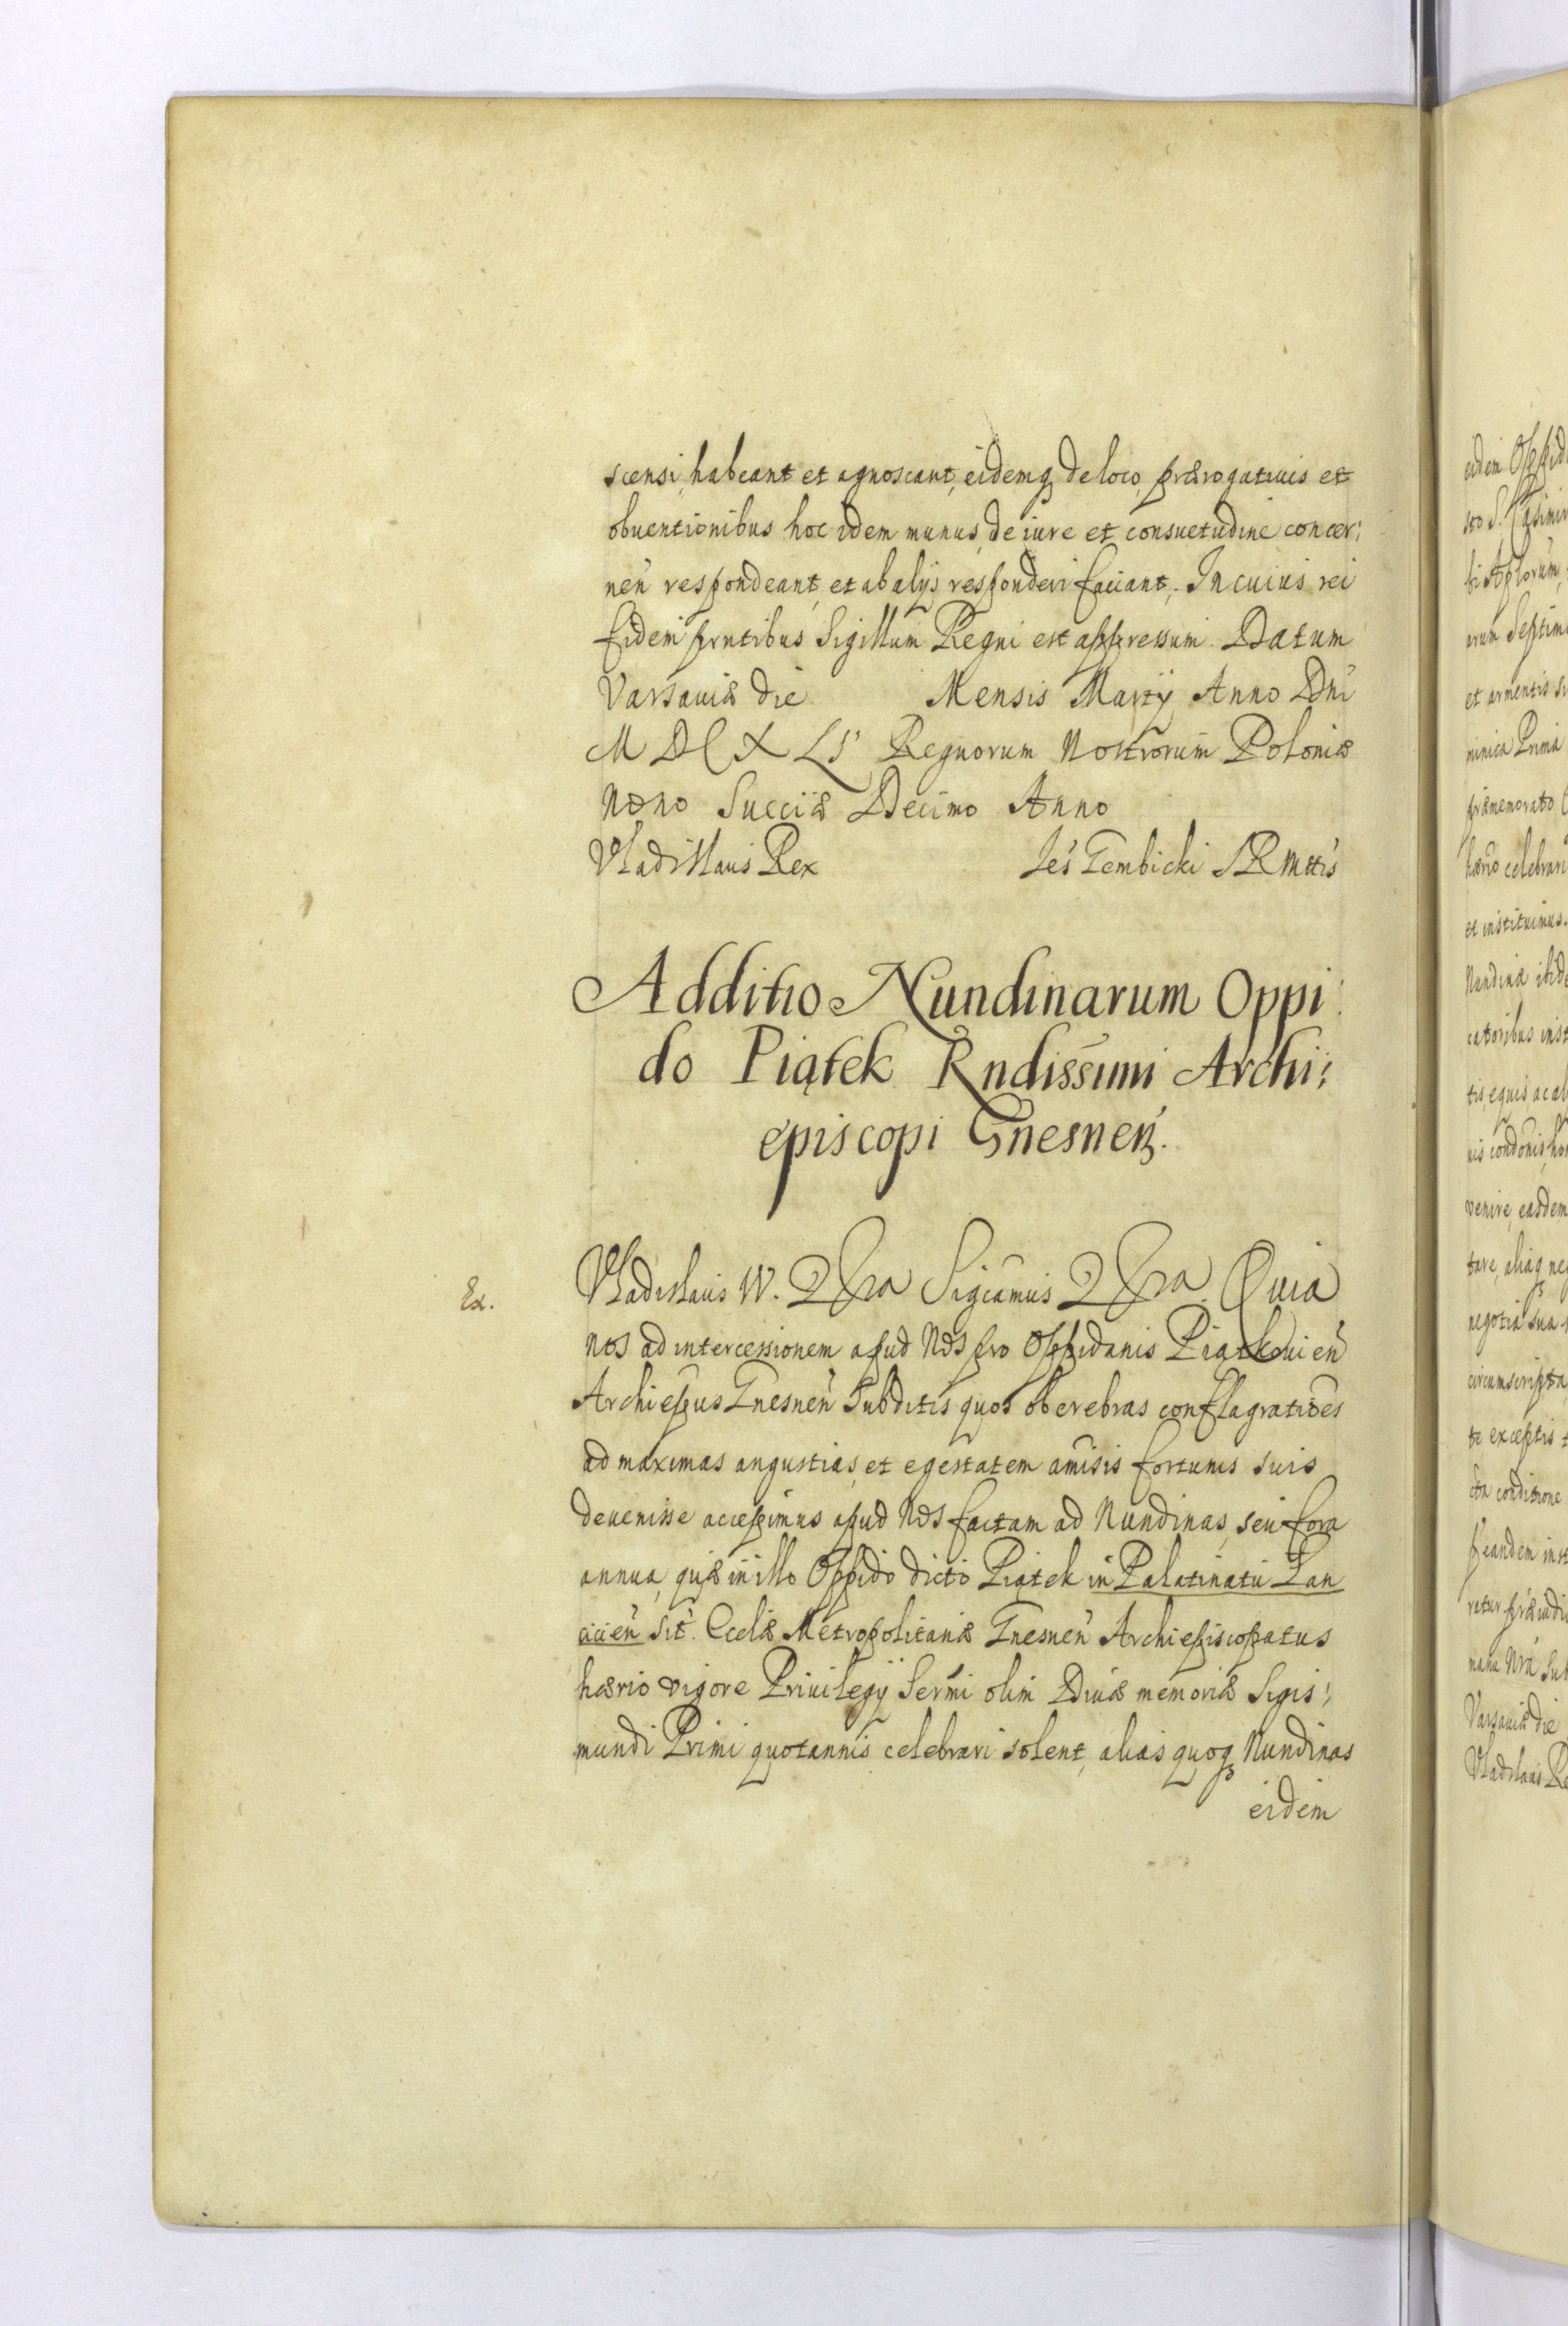 scensi, habeant et agnoscant, eidemq de loco, prærogatiuis et
obuentionibus hoc idem munus, de iure et consuetudine concer:
nen̄ respondeant, et ab alijs responderi faciant. In cuius rei
fidem prntibus Sigillum Regni est appressum. Datum
Varsauiæ die Mensis Martÿ Anno Dnī
MDCXLI Regnorum Nostrorum Poloniæ
Nono Sueciæ Decimo Anno
Vladislaus Rex Jēs Gembicki SRMttis
Additio Nundinarum Oppi:
do Piątek Rndissimi Archi:
episcopi Gnesnen.
Ex.
Vladislaus IV. Significamus Quia
nos ad intercessionem apud Nos pro Oppidanis Piątkouien̄
Archiepus Gnesnen̄ Subditis quos ob crebras conflagratiões
ad maximas angustias, et egestatem amisis fortunis suis
deuenisse accepimus apud Nos factam ad Nundinas, seu fora
annua, quæ in illo Oppido dicto Piątek in Palatinatu Lan
cicien̄ sit. Ecclæ Metropolitanæ Gnesnen̄ Archiepiscopatus
hærio vigore Priuilegÿ Sermi olim Diuæ memoriæ Sigis:
mundi Primi quotannis celebrari solent, alias quoq Nundinas
eidem
eidem Oppid
sto S. Casimir
li Aplorum,
Septim
et armentis
minica Prima
præmemorato
hærio celebrari
et instituimus.
Nundinæ ibid
catoribus inst
tis, equis ac al
venire, easdem
tare, aliaq ne
negotia sua
circumscripta
te exceptis
conditione
manu Nrā Sub
Varsauiæ die
Vladislaus Re